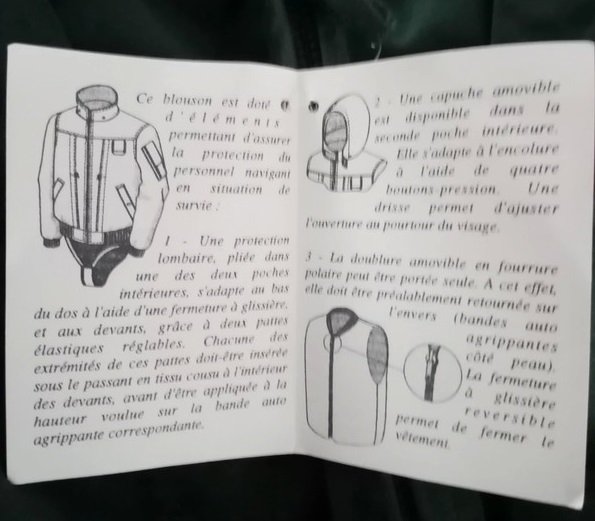 Ce blouson est doté
d'éléments
permettant d'assurer
la protection du
personnel navigant
en situation de
survie :
1 - Une protection
lombaire, pliée dans
une des deux poches
intérieures, s'adapte au bas
du dos à l'aide d'une fermeture à glissière,
et aux devants, grâce à deux pattes
élastiques réglables. Chacune des
extrémités de ces pattes doit-être insérée
sous le passant en tissu cousu à l'intérieur
des devants, avant d'être appliquée à la
hauteur voulue sur la bande auto
agrippante correspondante.
2 - Une capuche amovible
est disponible dans la
seconde poche intérieure.
Elle s'adapte à l'encolure
à l'aide de quatre
boutons-pression. Une
drisse permet d'ajuster
l'ouverture au pourtour du visage.
3 - La doublure amovible en fourrure
polaire peut être portée seule. A cet effet,
elle doit être préalablement retournée sur
l'envers (bandes auto
agrippantes
côté peau).
La fermeture
à glissière
reversible
permet de fermer le
vêtement.